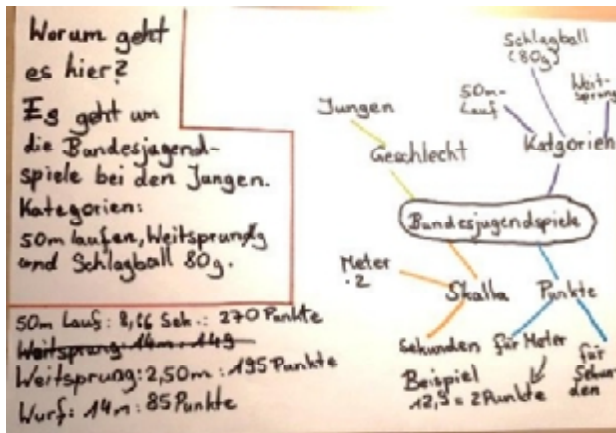 Worum geht
es hier?
Es geht um
die Bundesjagend-
spiele bei den Jungen.
Kategorien:
50m laufen, Weitsprung
und Schlagball 80g.
50m Lauf: 8,16 Sek.: 270 Punkte
Weitsprung: 14m: 149
Weitsprung: 2,50m: 195 Punkte
Wurf: 14m: 85 Punkte
Schlagball
(80g)
50m-
Lauf
Weit-
sprung
Jungen
Geschlecht
Katgorien
Bundesjugendspiele
Meter
Skalla
Punkte
Sekunden
für Meter
für
Sekun-
den
Beispiel
12,9 = 2 Punkte